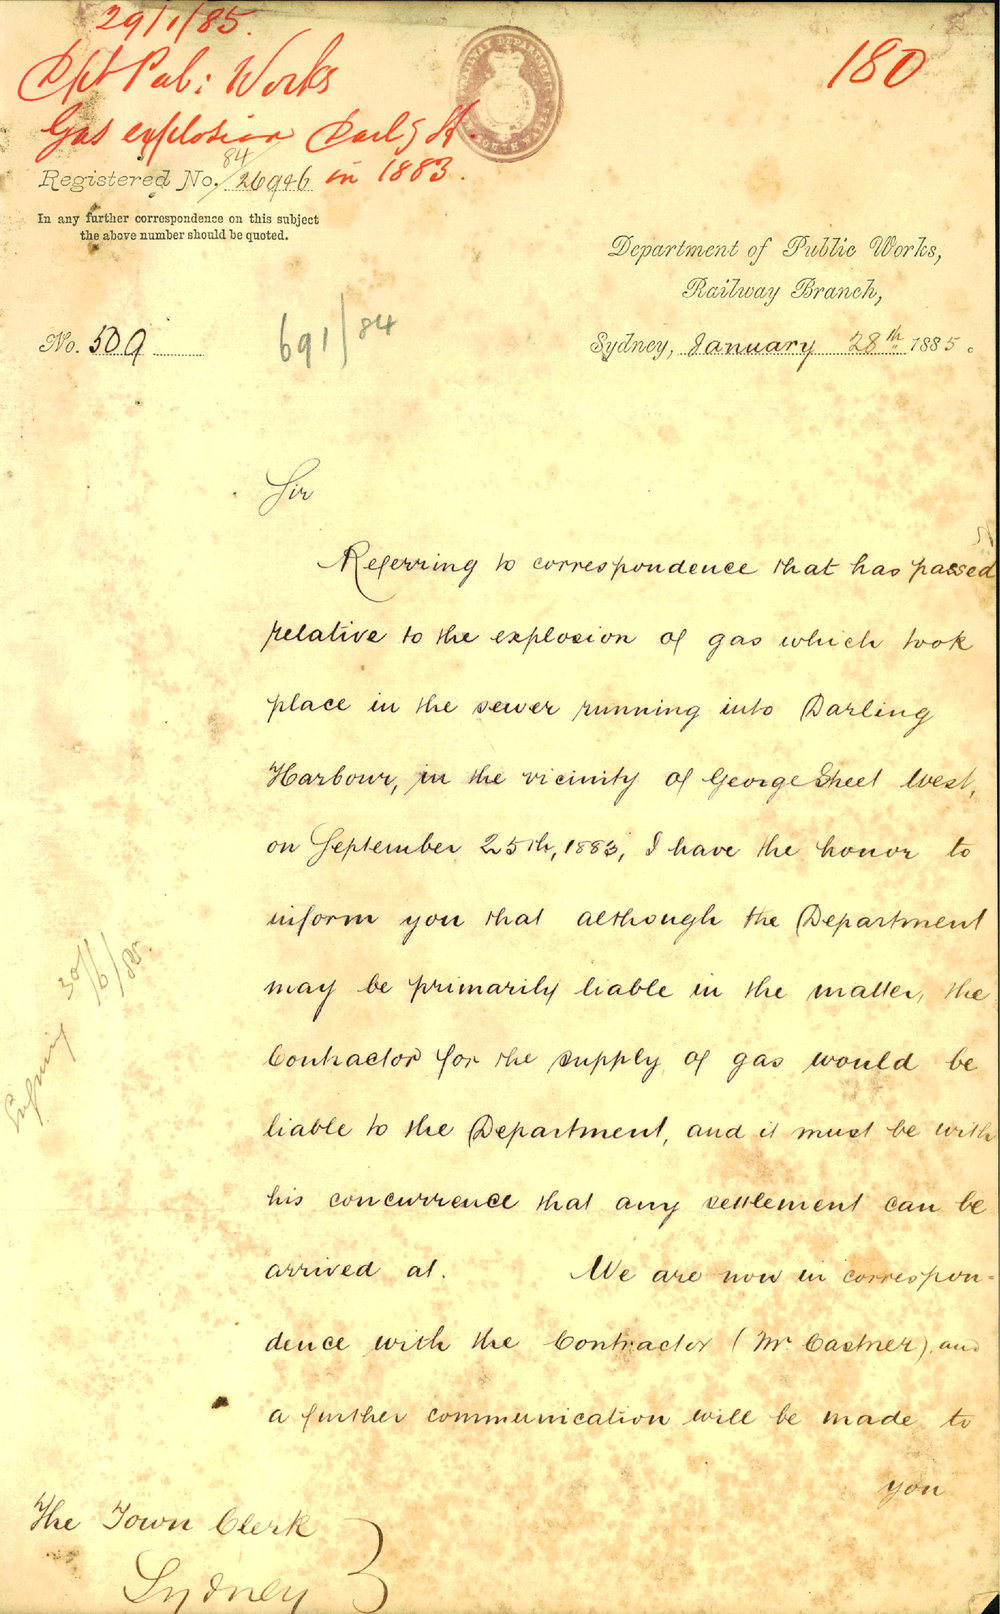 29/1/85.
180
Dpt Pub: Works
Gas explosion Darlg H.
in 1883.
Registered No. 84/26946
In any further correspondence on this subject
the above number should be quoted.
Department of Public Works,
Railway Branch,
No. 509
691/84
Sydney, January 28th 1885.
Sir
Referring to correspondence that has passed
relative to the explosion of gas which took
place in the sewer running into Darling
Harbour, in the vicinity of George Street West,
on September 25th, 1883, I have the honor to
inform you that although the Department
may be primarily liable in the matter, the
Contractor for the supply of gas would be
liable to the Department, and it must be with
his concurrence that any settlement can be
arrived at. We are now in correspon-
dence with the Contractor (Mr. Castner) and
a further communication will be made to
you
The Town Clerk
Sydney